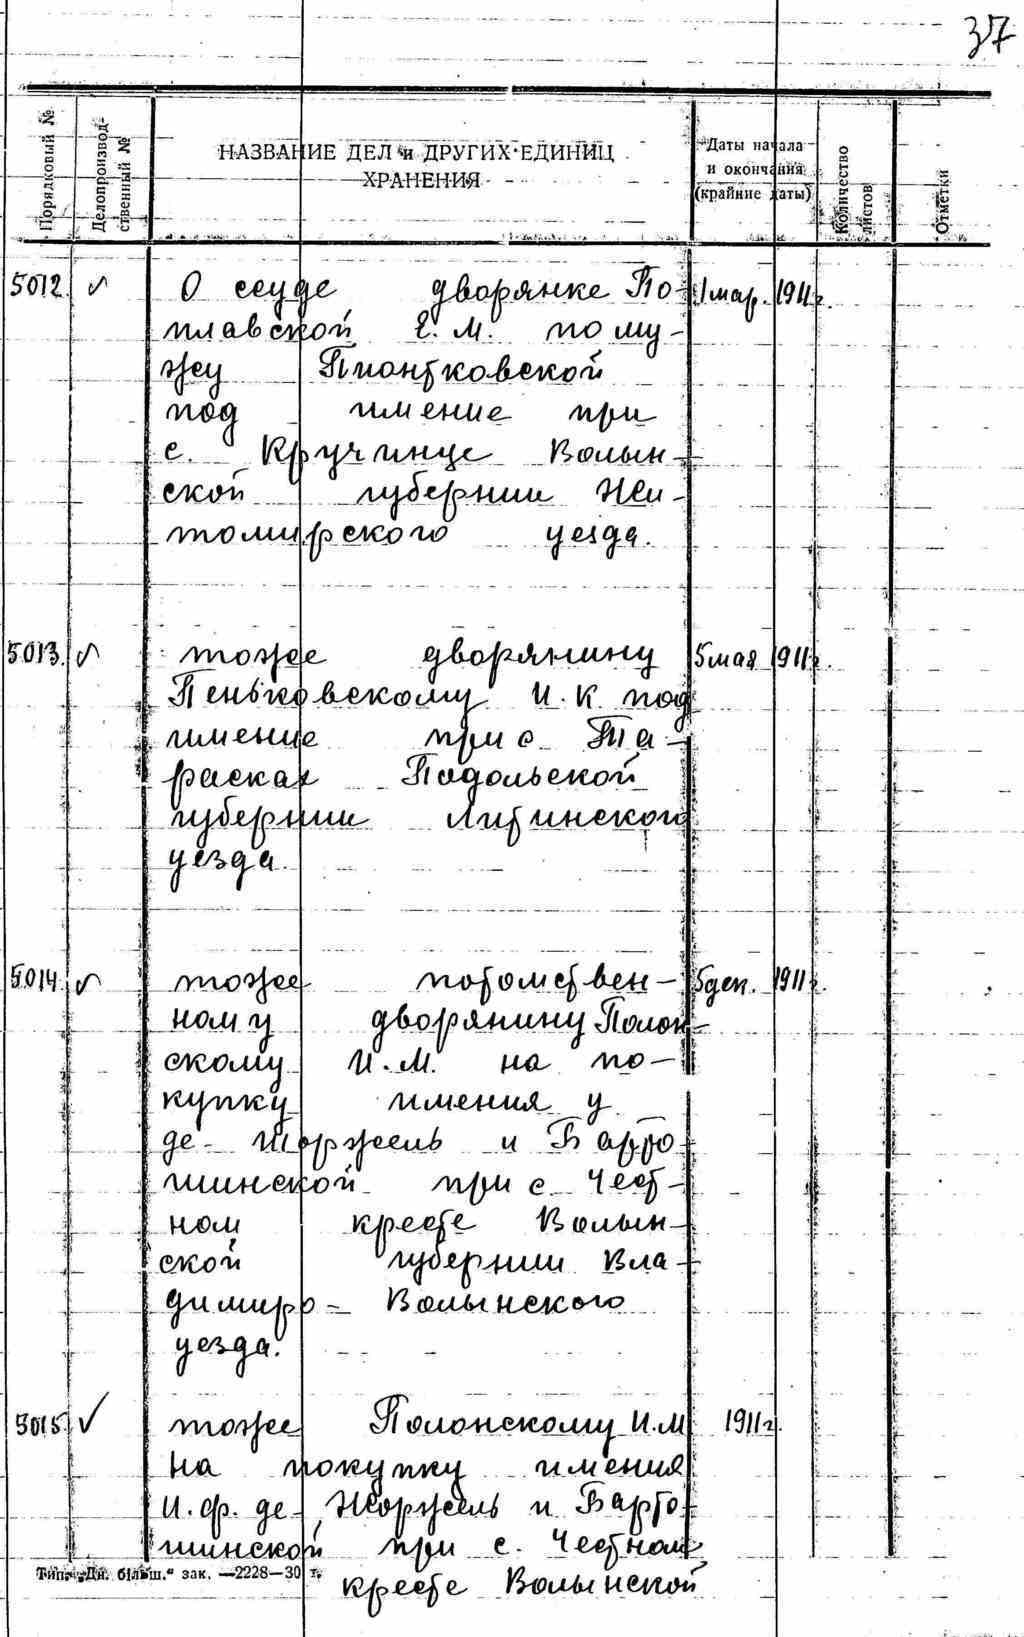 37
Порядковый №
Делопроизвод-
ственный №
НАЗВАНИЕ ДЕЛ и ДРУГИХ ЕДИНИЦ
ХРАНЕНИЯ
Даты начала
и окончания
(крайние даты)
Количество
листов
Отметки
5012. О ссуде дворянке По- 1 мар. 1911 г.
плавской Е. М. по му-
жу Пионтковской
под имение при
с. Кручинце Волын-
ской губернии Жи-
томирского уезда.
5013. тоже дворянину 5 мая 1911 г.
Пеньковскому И. К. под
имение при с Та-
расках Подольской
губернии Литинского
уезда.
5014. тоже потомствен- 5 дек. 1911 г.
ному дворянину Полон-
скому И. М. на по-
купку имения у
де - Жоржель и Барто-
шинской при с. Чест-
ном кресте Волын-
ской губернии Вла-
димиро - Волынского
уезда.
5015. ✓ тоже Полонскому И. М 1911 г.
на покупку имения
И. Ф. де - Жоржель и Барто-
шинской при с. Честном
кресте Волынской
Тип. „Дн. більш.“ зак. —2228—30 г.